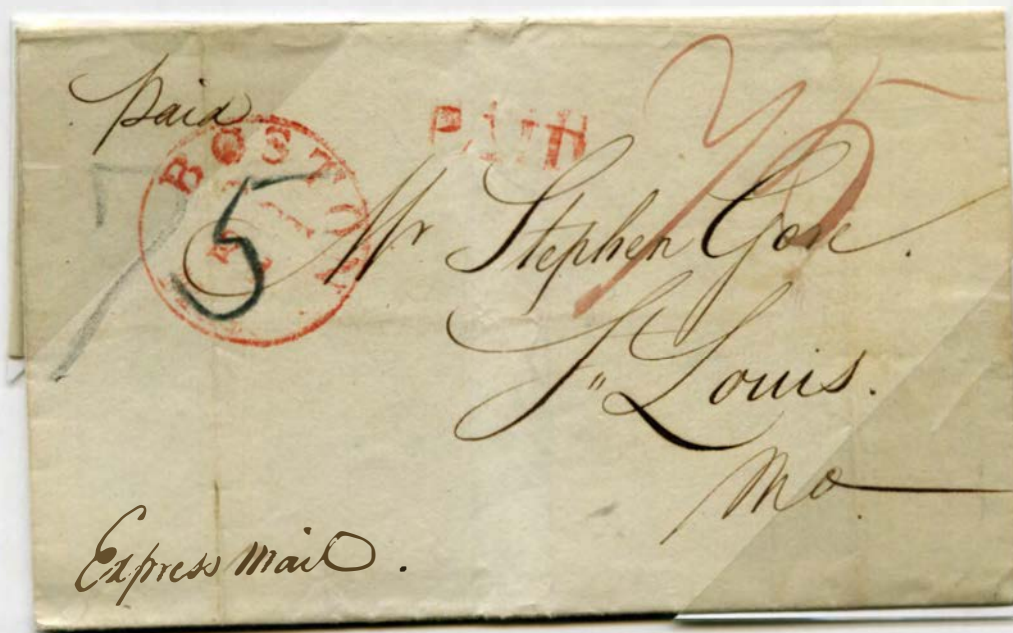 Paid
BOSTON
PAID
75
5
Mr Stephen Gore.
St" Louis.
Mo
Express Mail.